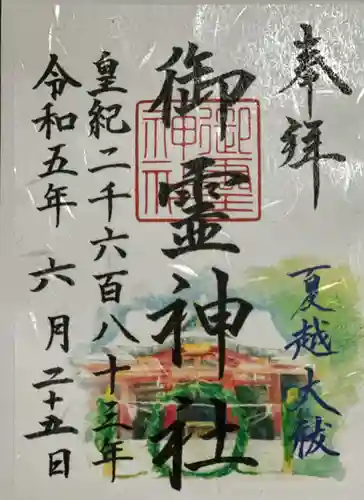 奉拝
夏越大祓
御霊神社
御霊神社
皇紀二千六百八十三年
令和五年 六月二十五日